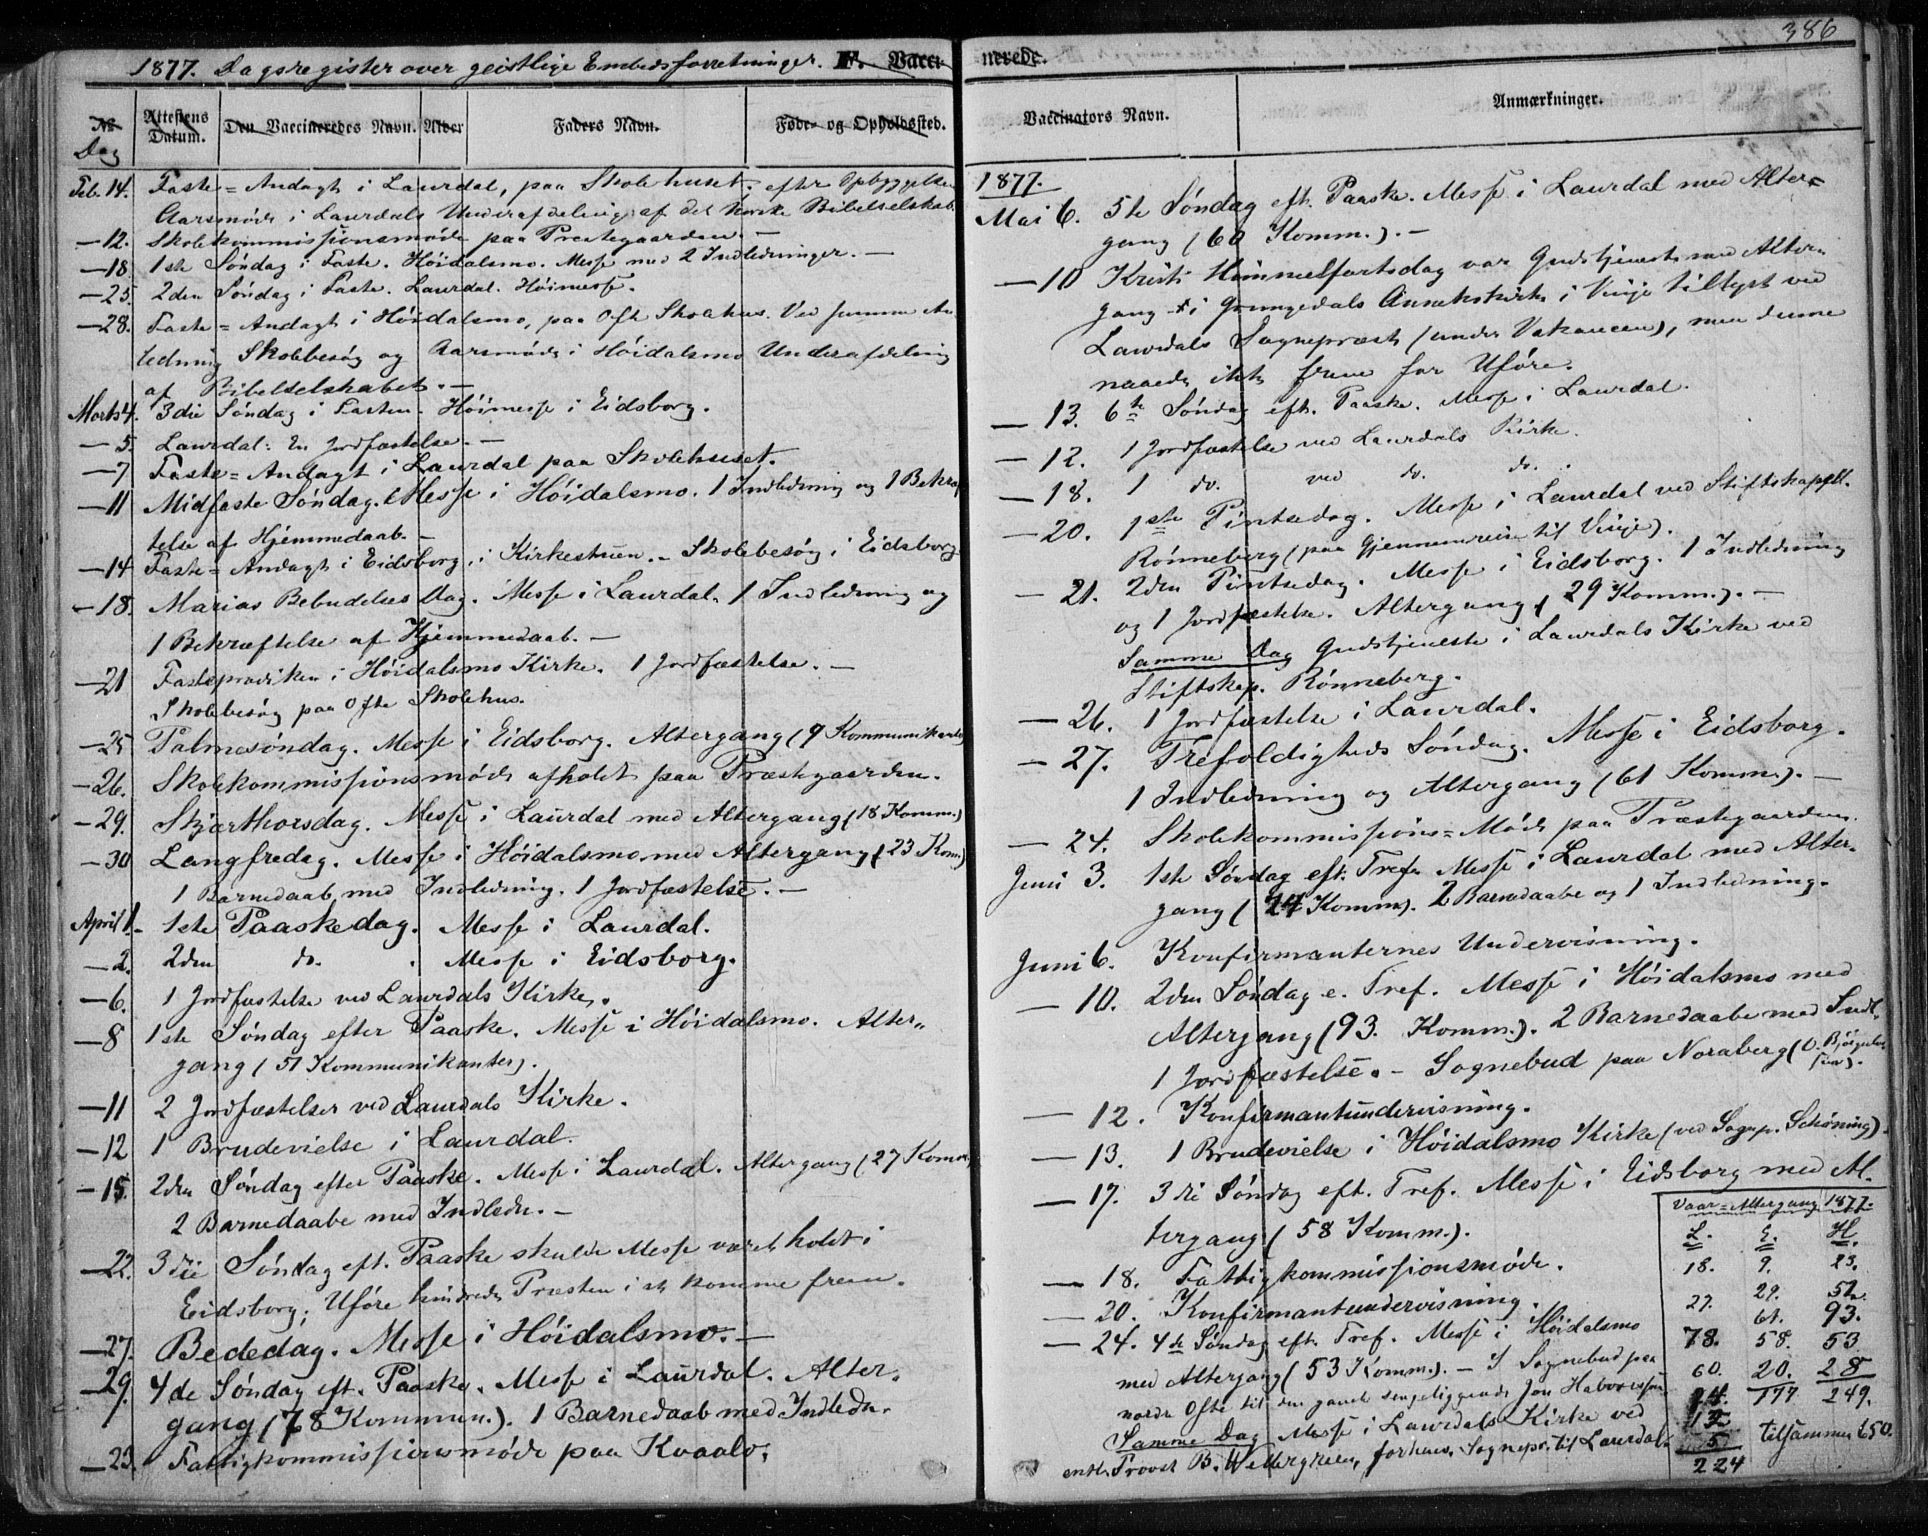 386
1877. Dagsregister over geistlige Embedsforretninger. F. Vacci-
nerede.
No
Dag
Attestens Datum.
Den Vaccineredes Navn.
Alder
Faders Navn.
Føde- og Opholdssted.
Feb. 14. Faste=Andagt i Laurdal, paa Skolehuset; efter Opbyggelsen
Aarsmøde i Laurdals Underafdeling af det norske Bibelselskab.
—12. Skolekommissionsmøde paa Prestegaarden. —
—18. 1ste Søndag i Faste. Høidalsmo. Messe med 2 Indledninger. —
—25. 2den Søndag i Faste. Laurdal. Høimesse.
—28. Faste=Andagt i Høidalsmo, paa Ofte Skolehus. Ved samme An-
ledning Skolebesøg og Aarsmøde i Høidalsmo Underafdeling
af Bibelselskabet. —
Marts 4. 3die Søndag i Fasten. Høimesse i Eidsborg.
— 5. Laurdal: En Jordfæstelse. —
—7 Faste=Andagt i Laurdal paa Skolehuset.
—11 Midfaste Søndag. Messe i Høidalsmo. 1 Indledning og 1 Bekræf-
telse af Hjemmedaab. —
—14 Faste=Andagt i Eidsborg, i Kirkestuen. - Skolebesøg i Eidsborg.
—18. Marias Bebudelses Dag. Messe i Laurdal. 1 Indledning og
1 Bekræftelse af Hjemmedaab. —
—21 Fasteprædiken i Høidalsmo Kirke. 1 Jordfæstelse. —
Skolebesøg paa Ofte Skolehus.
—25 Palmesøndag. Messe i Eidsborg. Altergang (9 Kommunikanter)
—26. Skolekommissionsmøde afholdt paa Præstegaarden.
—29. Skjærthorsdag. Messe i Laurdal med Altergang (18 Komm.)
—30 Langfredag. Messe i Høidalsmo med Altergang (23 Kom.)
1 Barnedaab med Indledning. 1 Jordfæstelse. —
April 1. 1ste Paaskedag. Messe i Laurdal.
—2. 2den do. Messe i Eidsborg.
—6. 1 Jordfæstelse ved Laurdals Kirke.
—8 1ste Søndag efter Paaske. Messe i Høidalsmo. Alter-
gang (51 Kommunikanter).
—11 2 Jordfæstelser ved Laurdals Kirke.
—12 1 Brudevielse i Laurdal.
—15. 2den Søndag efter Paaske. Messe i Laurdal. Altergang (27 Komm.
2 Barnedaabe med Indledn. —
—22. 3die Søndag eft. Paaske skulde Messe været holdt i
Eidsborg; Uføre hindrede Præsten i at komme frem.
—27. Bededag. Messe i Høidalsmo. —
—29. 4de Søndag eft. Paaske. Messe i Laurdal. Alter-
gang (78 Kommun.). 1 Barnedaab med Indledn.
—23. Fattigkommissionsmøde paa Kvaalo.
Vaccinators Navn.
Anmærkninger.
1877.
Mai 6. 5te Søndag eft. Paaske. Messe i Laurdal med Alter=
gang (60 Komm.). —
—10 Kristi Himmelfartsdag var Gudstjeneste med Alter-
gang i Grungedals Annekskirke i Vinje tillyst ved
Laurdals Sognepræst (under Vakancen), men denne
naaede ikke frem for Uføre.
— 13. 6te Søndag eft. Paaske. Messe i Laurdal.
— 12. 1 Jordfæstelse ved Laurdals Kirke.
— 18. 1 do. ved do. do.
—20. 1ste Pintsedag. Messe i Laurdal ved Stiftskapell.
Rønneberg (paa Gjennemreise til Vinje).
— 21. 2den Pintsedag. Messe i Eidsborg. 1 Indledning
og 1 Jordfæstelse. Altergang (29 Komm.). —
Samme Dag Gudstjeneste i Laurdals Kirke ved
Stiftskap. Rønneberg.
— 26. 1 Jordfæstelse i Laurdal.
— 27. Trefoldigheds Søndag. Messe i Eidsborg.
1 Indledning og Altergang (61 Komm.). —
— 24. Skolekommissions=Møde paa Præstegaarden.
Juni 3. 1ste Søndag eft. Tref. Messe i Laurdal med Alter-
gang (24 Komm). 2 Barnedaabe og 1 Indledning.
Juni 6. Konfirmanternes Undervisning.
— 10. 2den Søndag e. Tref. Messe i Høidalsmo med
Altergang (93. Komm.). 2 Barnedaabe med Indl.
1 Jordfæstelse. - Sognebud paa Noraberg
— 12. Konfirmantundervisning.
— 13. 1 Brudevielse i Høidalsmo Kirke (ved Sognp. Schøning).
— 17. 3die Søndag eft. Tref. Messe i Eidsborg med Al-
tergang (58 Komm.).
— 18. Fattigkommissionsmøde.
— 20. Konfirmantundervisning
— 24. 4de Søndag eft. Tref. Messe i Høidalsmo
med Altergang (53 Komm.). — 1 Sognebud paa
nordre Ofte til den gamle sengeliggende Jon Halvorsson
Samme Dag Messe i Laurdals Kirke ved
Provst B. Wettergreen, forhenv. Sognepr. til Laurdal.
Vaar=Altergang 1877.
L. E. H.
18. 9. 23.
27. 29. 51.
78. 61. 93.
60. 58. 53
24. 20. 28
12 177 249.
5
224
tilsammen 650.